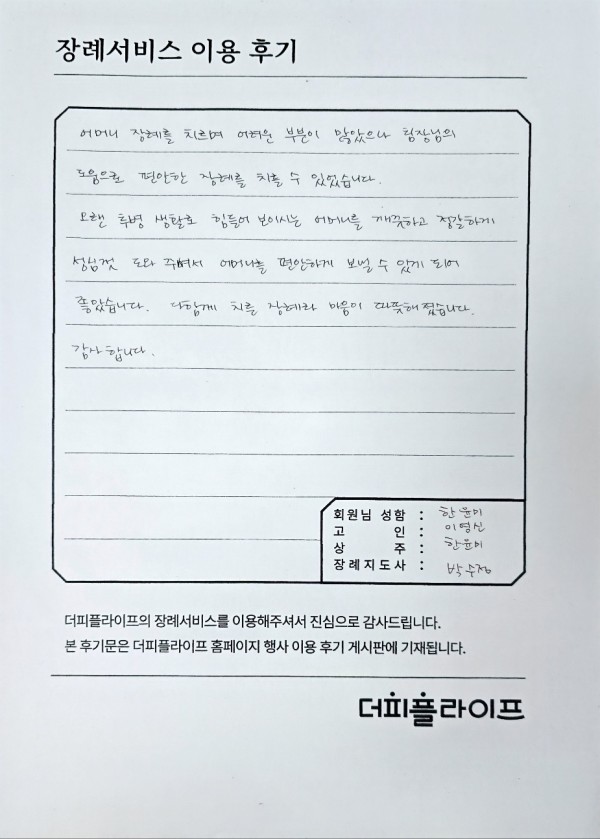 장례서비스 이용 후기
어머니 장례를 치르며 어려운 부분이 많았으나 팀장님의
도움으로 편안한 장례를 치를 수 있었습니다.
오랜 투병 생활로 힘들어 보이시는 어머니를 깨끗하고 정갈하게
성심껏 도와 주셔서 어머니를 편안하게 보낼 수 있게 되어
좋았습니다. 다함께 치를 장례라 마음이 따뜻해졌습니다.
감사합니다.
회원님 성함 : 한윤미
고 인 : 이영신
상 주 : 한윤미
장례지도사 : 박수정
더피플라이프의 장례서비스를 이용해주셔서 진심으로 감사드립니다.
본 후기문은 더피플라이프 홈페이지 행사 이용 후기 게시판에 기재됩니다.
더피플라이프